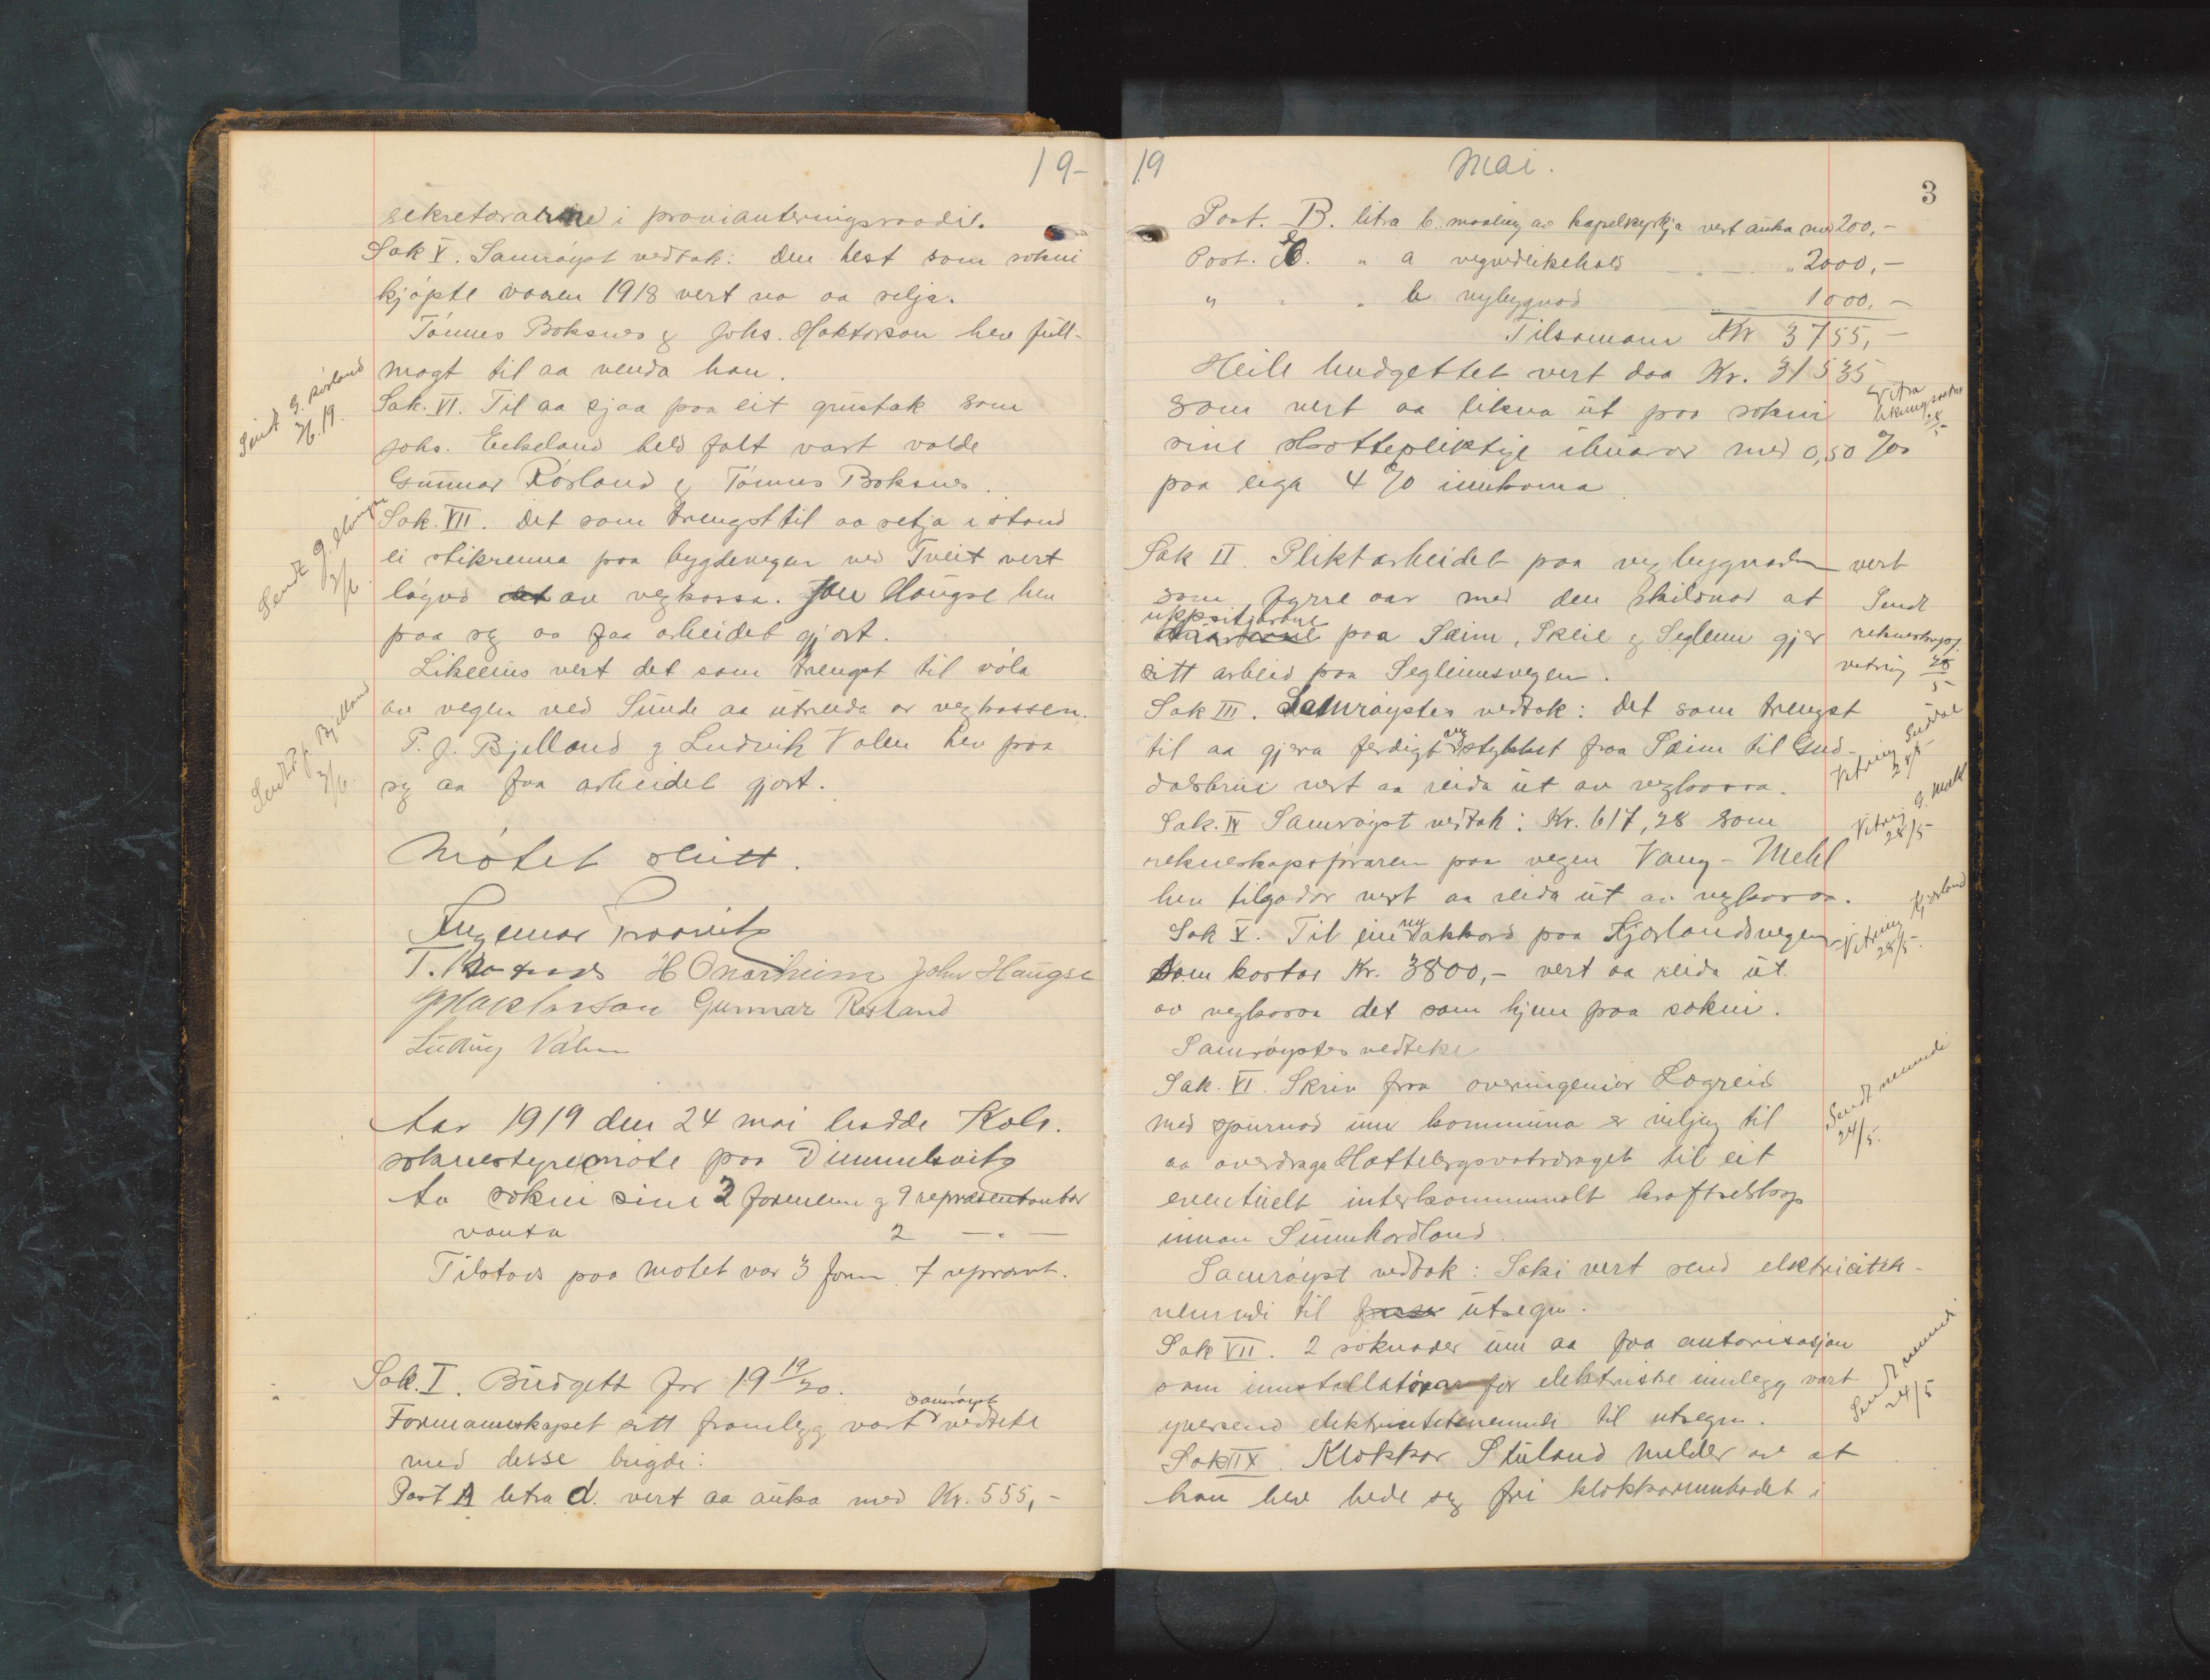 19-
sekretærarne i provianteringsraadit.
Sak V. Samrøyst vedtak: Den hest som sokni
kjøpte vaaren 1918 vert no aa selja.
Tønnes Boksnes & Johs. Haktorson hev full-
magt til aa venda han.
Sendt G. Røsland
3/6.19.
Sak. VI. Til aa sjaa paa eit grustak som
Johs. Enkeland held falt vart valde
Gunnar Røsland & Tønnes Boksnes.
Sak. VII. Det som trengst til aa setja i stand
ei stikrenna paa bygdevegen ved Tveit vert
løyvd av vegkassa. Jon Haugse hev
paa seg aa faa arbeidet gjort.
Sendt
3/6
Likeeins vert det som trengst til vøla
av vegen ved Sunde aa utreida or vegkassen.
P. J. Bjelland & Ludvik Valen hev paa
seg aa faa arbeidet gjort.
Sendt P. J. Bjelland
3/6.
Møtet slutt.
Ingemar
H Onarheim John Haugse
J Haktorson Gunnar Røsland
Ludvig Valen
Aar 1919 den 24 mai hadde Kvh.
soknestyre møte paa Dimmelsvik
Av sokni sine 3 formenn & 9 representantar
vanta 2 — " —
Tilstads paa møtet var 3 form. 7 represent.
Sak. I. Budgett for 19 19/20.
Formannskapet sitt framlegg vart samrøyst vedteke
med desse brigde:
Post A litra d. vert aa auka med Kr. 555,-
19 Mai.
3
Post. B. litra b. maaling av kapelkyrkja vert auka med 200,-
Post. C. " a vegvedlikehald " — " 2000,-
" " " b nybygnad 1000,-
Tilsamann Kr 3755,-
Heile budgettet vert daa Kr. 31535
som vert aa likna ut paa sokni
sine skottepliktige ibuarar med 0,50 ‰
paa eiga 4 % innkoma.
Sak II. Pliktarbeidet paa vegbygnaden vert
som fyrre aar med den skilnad at
uppsitjarane paa Sæim, Skeie & Seglem gjer
sitt arbeid paa Segleimsvegen.
Sendt
rekneskapsf.
vitring 28/5
Sak III. Samrøystes vedtak: Det som trengst
til aa gjera ferdigt vegstykket fraa Sæim til Gud-
dalsbrui vert aa reida ut av vegkassa.
Vitring
28/5
Sak. IV Samrøyst vedtak: Kr. 617,28 som
rekneskapsføraren paa vegen Vang - Mehl
hev tilgodar vert aa reida ut av vegkassa.
Vitring G. Mehl
28/5
Sak V. Til ein ny akkord paa Kjærlandsvegen
som kostar Kr. 3800,- vert aa reida ut
av vegkassa det som kjem paa sokni.
Samrøystes vedteke
Vitring Kjærland
28/5.
Sak. VI. Skriv fraa overingeniør Lægreid
med spurnad um kommuna er viljug til
aa overdraga Hattebergsvatsdraget til eit
eventuelt interkommunalt kraftselskap
innan Sunnhordland.
Sendt nemndi
24/5.
Samrøyst vedtak: Saki vert send elektricitets-
nemndi til utsegn.
Sak VII. 2 søknader um aa faa autorisasjon
som installatørar for elektriske innlegg vart
yversend elektrisitetsnemndi til utsegn.
Sendt nemnd.
24/5
Sak IIX. Klokkar Støland melder av at
han hev bede seg fri klokkarumbodet i